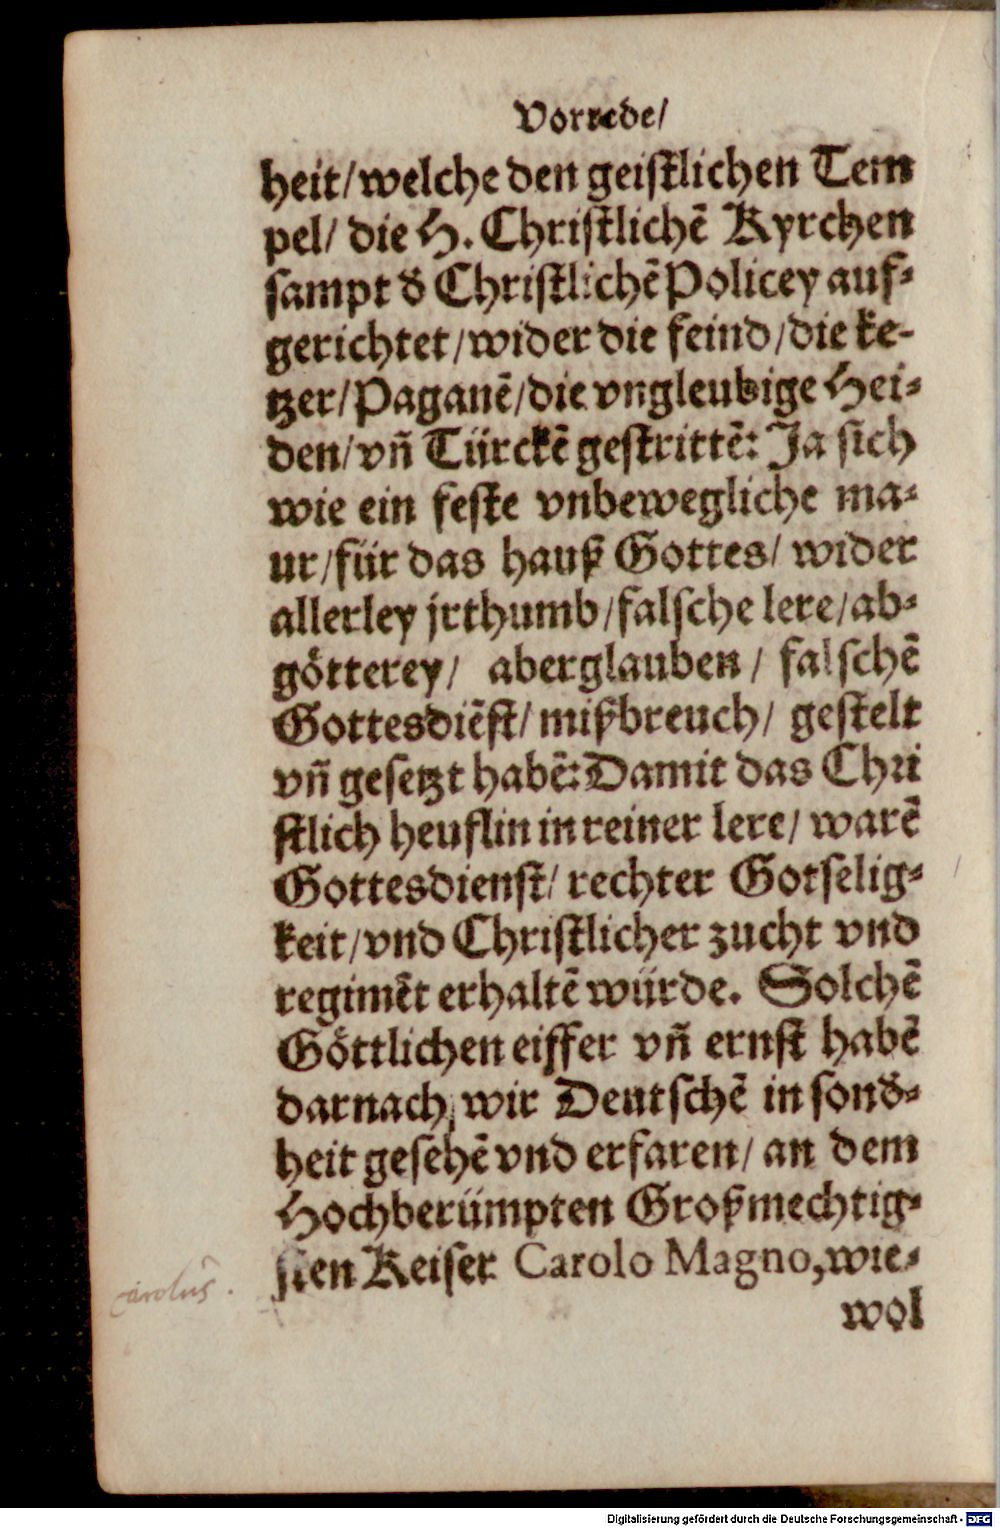 Vorrede/
heit/welche den geistlichen Tem
pel/ die H. Christlichẽ Kyrchen
sampt d' Christlichẽ Policey auf-
gerichtet/wider die feind/die ke-
tzer/Paganẽ/die vngleubige Hei-
den/vñ Türckẽ gestrittẽ: Ja sich
wie ein feste vnbewegliche ma-
ur/für das hauß Gottes/ wider
allerley jrthumb/falsche lere/ab-
götterey/ aberglauben/ falschẽ
Gottesdiẽst/mißbreuch/ gestelt
vñ gesetzt habẽ: Damit das Chri
stlich heuflin in reiner lere/ warẽ
Gottesdienst/ rechter Gotselig-
keit/vnd Christlicher zucht vnd
regimẽt erhaltẽ würde. Solchẽ
Göttlichen eiffer vñ ernst habẽ
darnach, wir Deutschẽ in sond'-
heit gesehẽ vnd erfaren/ an dem
Hochberümpten Großmechtig-
sten Keiser Carolo Magno, wie-
wol
Carolus.
Digitalisierung gefördert durch die Deutsche Forschungsgemeinschaft - DFG